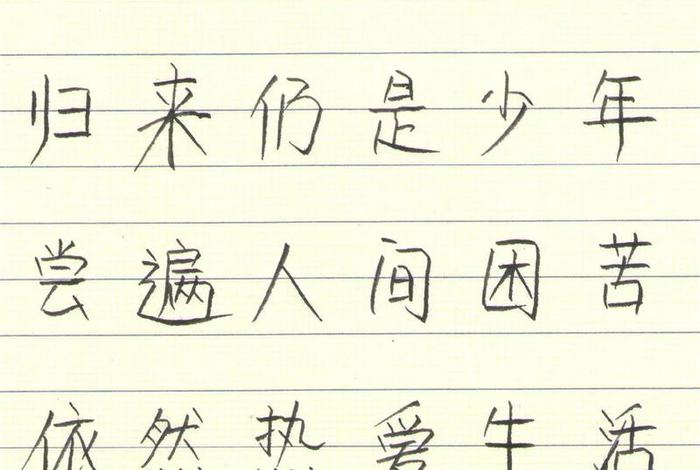 归来仍是少年
尝遍人间困苦
依然热爱生活